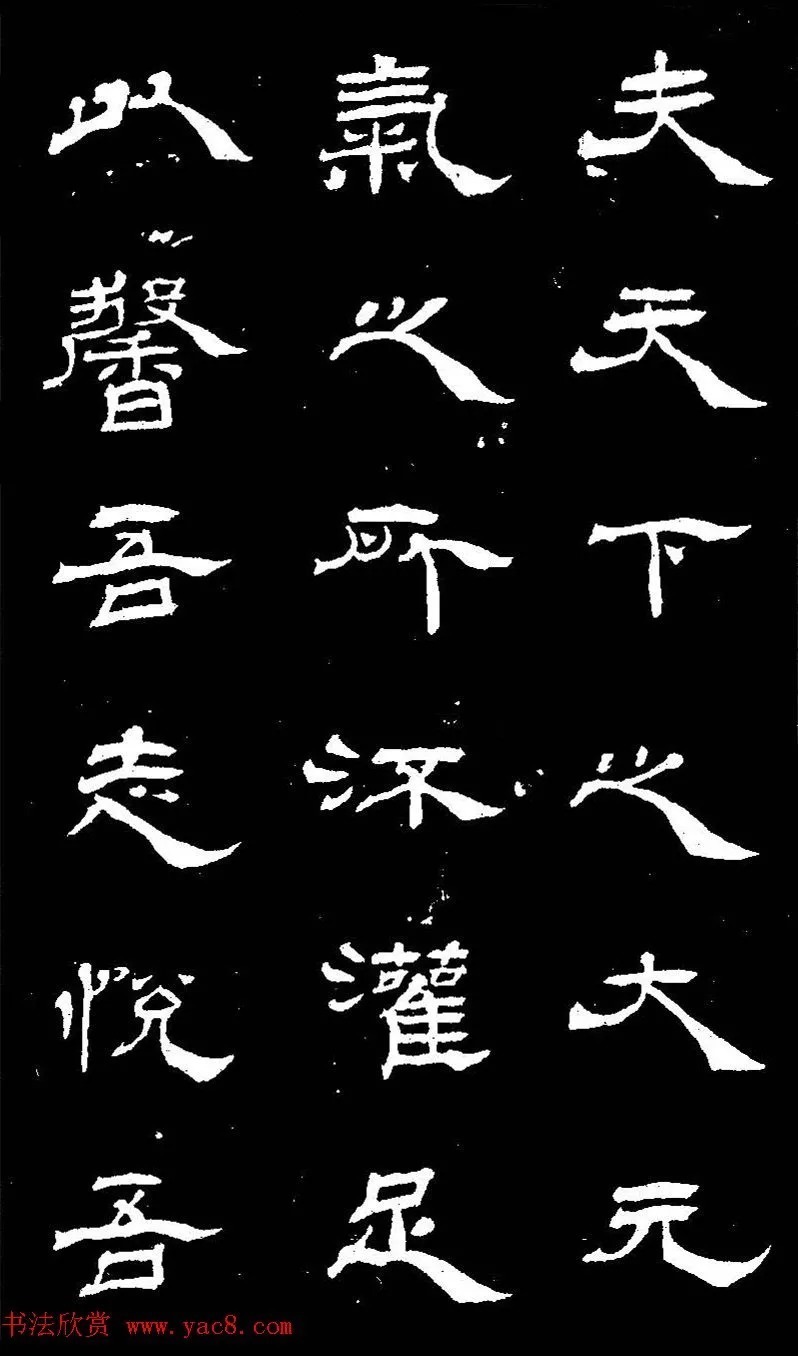 夫天下之大元
氣之所灌足
以馨吾志悦吾
书法欣赏 www.yac8.com